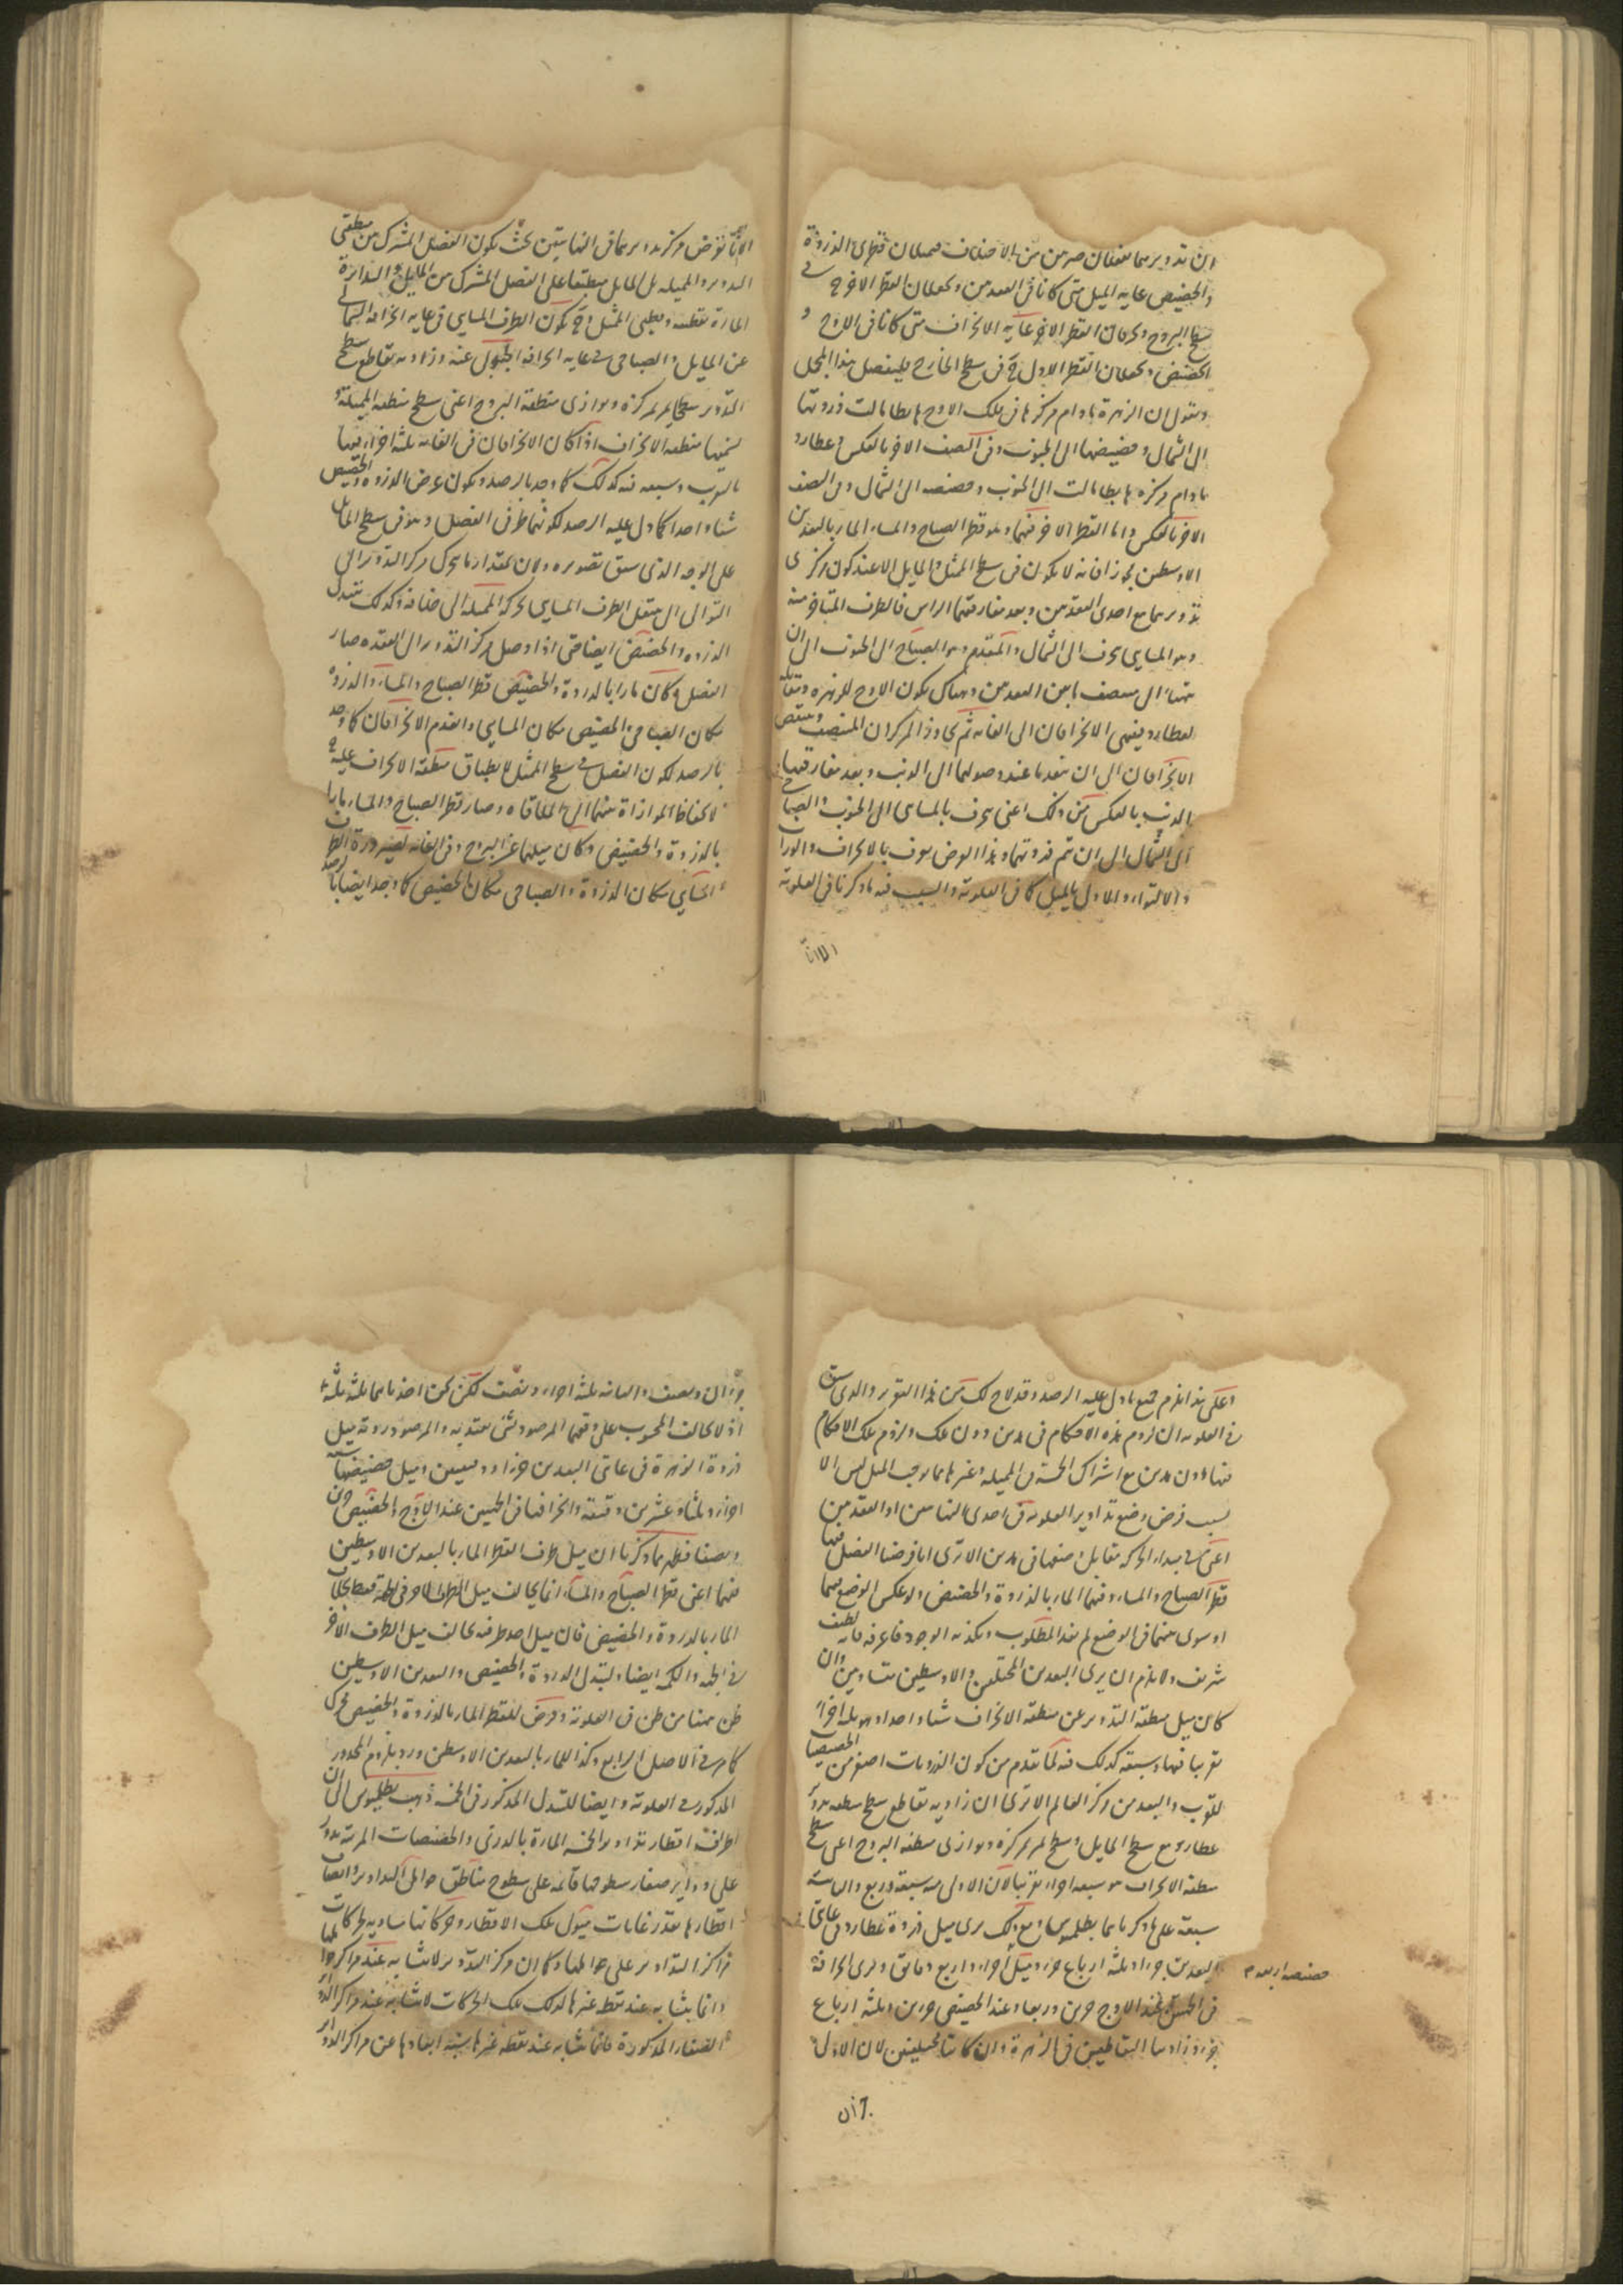 والحضيض غاية الميل متى كانا في العقدين ويجعلان القطر الاخر في
سطح البروج ويحرفان القطر الاخر غاية الانحراف متى كانا في الاوج و
الحضيض ويجعلان القطر الاول ح في سطح الخارج فليفصل هذا المجمل
ونقول ان الزهرة ما دام مركزها في فلك الاوج هابطا مالت ذروتها
الى الشمال وحضيضها الى الجنوب وفي النصف الاخر بالعكس وعطارد
ما دام مركزه هابطا مالت الى الجنوب وحضيضه الى الشمال وفي النصف
الاخر بالعكس واما القطر الاخر منهما وهو قطر الصباح والمساء المار بالبعدين
الاوسطين فلا يكون في سطح الممثل والمايل الا عند كون مركزي
تدويرهما مع احدى العقدين وبعد مفارقتهما الراس فالطرف المتاخر منه
وهو المسايي يحرف الى الشمال والمتقدم وهو الصباحي الى الجنوب الى ان
ينتهيا الى منتصف ما بين العقدين وهناك يكون الاوج للزهرة ومقابله
لعطارد وينتهي الانحرافان الى الغاية ثم يجاوز المركزان المنتصف وينتقص
الانحرافان الى ان ينعدما عند وصولهما الى الذنب وبعد مفارقتهما
الذنب بالعكس من ذلك اعني يحرف بالمسايي الى الجنوب والصباحي
الى الشمال الى ان تتم دورتهما وهذا العرض يعرف بالانحراف والوراب
والالتواء والاول بالميل كما في العلوية والسبب فيه ما ذكرنا في العلوية
الا انا
الا انا نفرض مركز تدويرهما في النهايتين بحيث يكون الفصل المشترك بين منطقتي
التدوير والمميلة بل المايل منطبقا على الفصل المشترك بين المايل والدائرة
المارة بقطبيه وبقطبي الممثل وح يكون الطرف المسايي في غاية انحرافه الشمالي
عن المايل والصباحي في غاية انحرافه الجنوبي عنه وزاوية تقاطع سطح
التدوير سطحا يمر بمركزه ويوازي منطقة البروج اعني سطح منطقة المميلة و
لنسمها منطقة الانحراف اذا كان الانحرافان في الغاية ثلثة اجزاء فيها
بالتقريب وسبعة فيه كذلك كما وجد بالرصد ويكون عرض الذروة والحضيض
شيئا واحدا كما دل عليه الرصد لكونهما طرفي الفصل وهو في سطح المايل
على الوجه الذي سبق تصويره ولان بمقدار ما تحرك مركز التدوير الى
التوالي ينتقل الطرف المسايي بحركة المميلة الى خلافه وكذلك يتبدل
الذروة والحضيض ايضا حتى اذا وصل مركز التدوير الى العقدة صار
الفصل وكان مارا بالذروة والحضيض قطر الصباح والمساء والذروة
مكان الصباحي والحضيض مكان المسايي وانعدم الانحرافان كما وجد
بالرصد لكون الفصل في سطح الممثل لانطباق منطقة الانحراف عليه ح
لانحفاظ الموازاة بينهما الى الملاقاة وصار قطر الصباح والمساء مارا
بالذروة والحضيض وكان ميلهما عن البروج وفي الغاية لصيرورة الطرف
المسايي مكان الذروة والصباحي مكان الحضيض كما وجد ايضا بالرصد
وعلى هذا يلزم جميع ما دل عليه الرصد وقد لاح لك من هذا التقرير والذي سبق
في العلوية ان لزوم هذه الاحكام في هذين دون تلك ولزوم تلك الاحكام
فيها دون هذين مع اشتراك الخمسة في المميلة وغيرها مما يوجب الميل ليس الا
بسبب فرض وضع تداوير العلوية في احدى النهايتين او العقدين
اعني في مبداء الحركة مقابل وضعها في هذين الا ترى انا فرضنا الفصل فيها
قطر الصباح والمساء وفيهما المار بالذروة والحضيض ولو عكس الوضع فيهما
او سوى بينهما في الوضع لم يفد المطلوب وتكذبه الوجود فاعرفه فانه لطيف
شريف ولا يلزم ان يرى البعدين المختلفين والاوسطين متساويين وان
كان ميل منطقة التدوير عن منطقة الانحراف شيئا واحدا وهو ثلثة اجزاء
تقريبا فيها وسبعة كذلك فيه لما تقدم من كون الذرويات اصغر من الحضيضيات
للقرب والبعد من مركز العالم الا ترى ان زاوية تقاطع سطح منطقة تدوير
عطارد مع سطح المايل وسطح يمر بمركزه ويوازي منطقة البروج اعني سطح
منطقة الانحراف هو سبعة اجزاء تقريبا لان الاولى ستة وربع والثانية
سبعة على ما ذكره بطلميوس ومع ذلك يرى ميل ذروة عطارد في غايتي
البعدين جزءا وثلثة ارباع جزء وميل اجزاء واربع دقائق ويرى انحرافه
حضيضه اربعة م
في الحسين عند الاوج جزئين وربعا وعند الحضيض جزئين وثلثة ارباع
جزء وزاويتا التقاطعين في الزهرة وان كانتا مختلفتين لان الاول
جزءان
جزءان ونصف والثانية ثلثة اجزاء ونصف لكن نحن اخذناهما ثلثة ثلثة
اذ لا يخالف المحسوب على وفقهما المرصود بشيء يعتد به والمرصود رؤية ميل
ذروة الزهرة في غايتي البعدين جزءا ودقيقتين وميل حضيضها ستة
اجزاء وثلثا وعشرين دقيقة وانحرافها في الحسين عند الاوج والحضيض جزئين
ونصفا فظهر مما ذكرنا ان ميل طرف القطر المار بالبعدين الاوسطين
فيهما اعني قطر الصباح والمساء انما يخالف ميل الطرف الاخر في الجهة فقط بخلاف
المار بالذروة والحضيض فان ميل احد طرفيه يخالف ميل الطرف الاخر
في الجهة والكمية ايضا ولتبدل الذروة والحضيض والبعدين الاوسطين
ظن ههنا من ظن في العلوية وفرض للقطر المار بالذروة والحضيض محرك
كما مر في الاصل الرابع وكذا للمار بالبعدين الاوسطين ورد بلزوم المحذور
المذكور في العلوية وايضا للتبدل المذكور في الخمسة ذهب بطلميوس الى ان
اطراف اقطار تداوير الخمسة المارة بالذرى والحضيضات المرئية تدور
على دواير صغار سطوحها قائمة على سطوح مناطق حوامل التداوير وانصاف
اقطارها بقدر غايات ميول تلك الاقطار وحركاتها مساوية لحركات
مراكز التداوير على حواملها وكما ان مركز التدوير لا تشابه عند مراكز حواملها
وانما يتشابه عند نقط غيرها كذلك تلك الحركات لا تشابه عند مراكز الدواير
الصغار المذكورة فانما تشابه عند نقط غيرها نسبة ابعادها عن مراكز الدواير